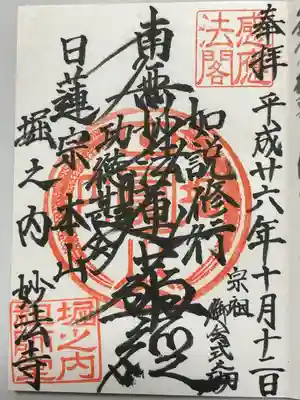 奉拝
平成廿六年十月十二日
宗祖
御会式之砌
感應
法閣
如説修行
南無妙法蓮華経
功徳甚多
日蓮宗本山
堀之内
妙法寺
堀之内